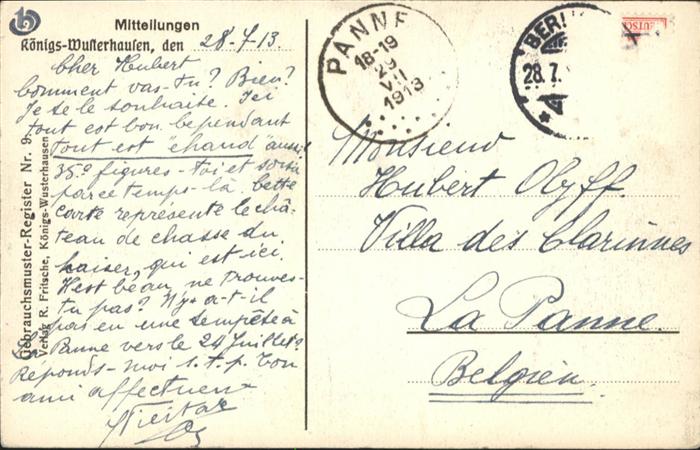 Mitteilungen
Königs-Wusterhausen, den 28-7-13
Cher Hubert
Comment vas-tu? Bien?
Je te le souhaite. Ici
tout est bon. Cependant
tout est "chaud" aussi!
35° figures-toi et
par ce temps-là. Cette
carte représente le châ-
teau de chasse du
Kaiser, qui est ici.
Il est beau, ne trouves-
tu pas? N'y a-t-il
pas eu une tempête à
Panne vers le 24 Juillet?
Réponds-moi s.t.p. Ton
ami affectueux
Gebrauchsmuster-Register Nr. 9
Verlag R. Fritsche, Königs-Wusterhausen
PANNE
18-19
29
VII
1913
BERL
28.7.
Monsieur
Hubert
Villa des
La Panne.
Belgien.